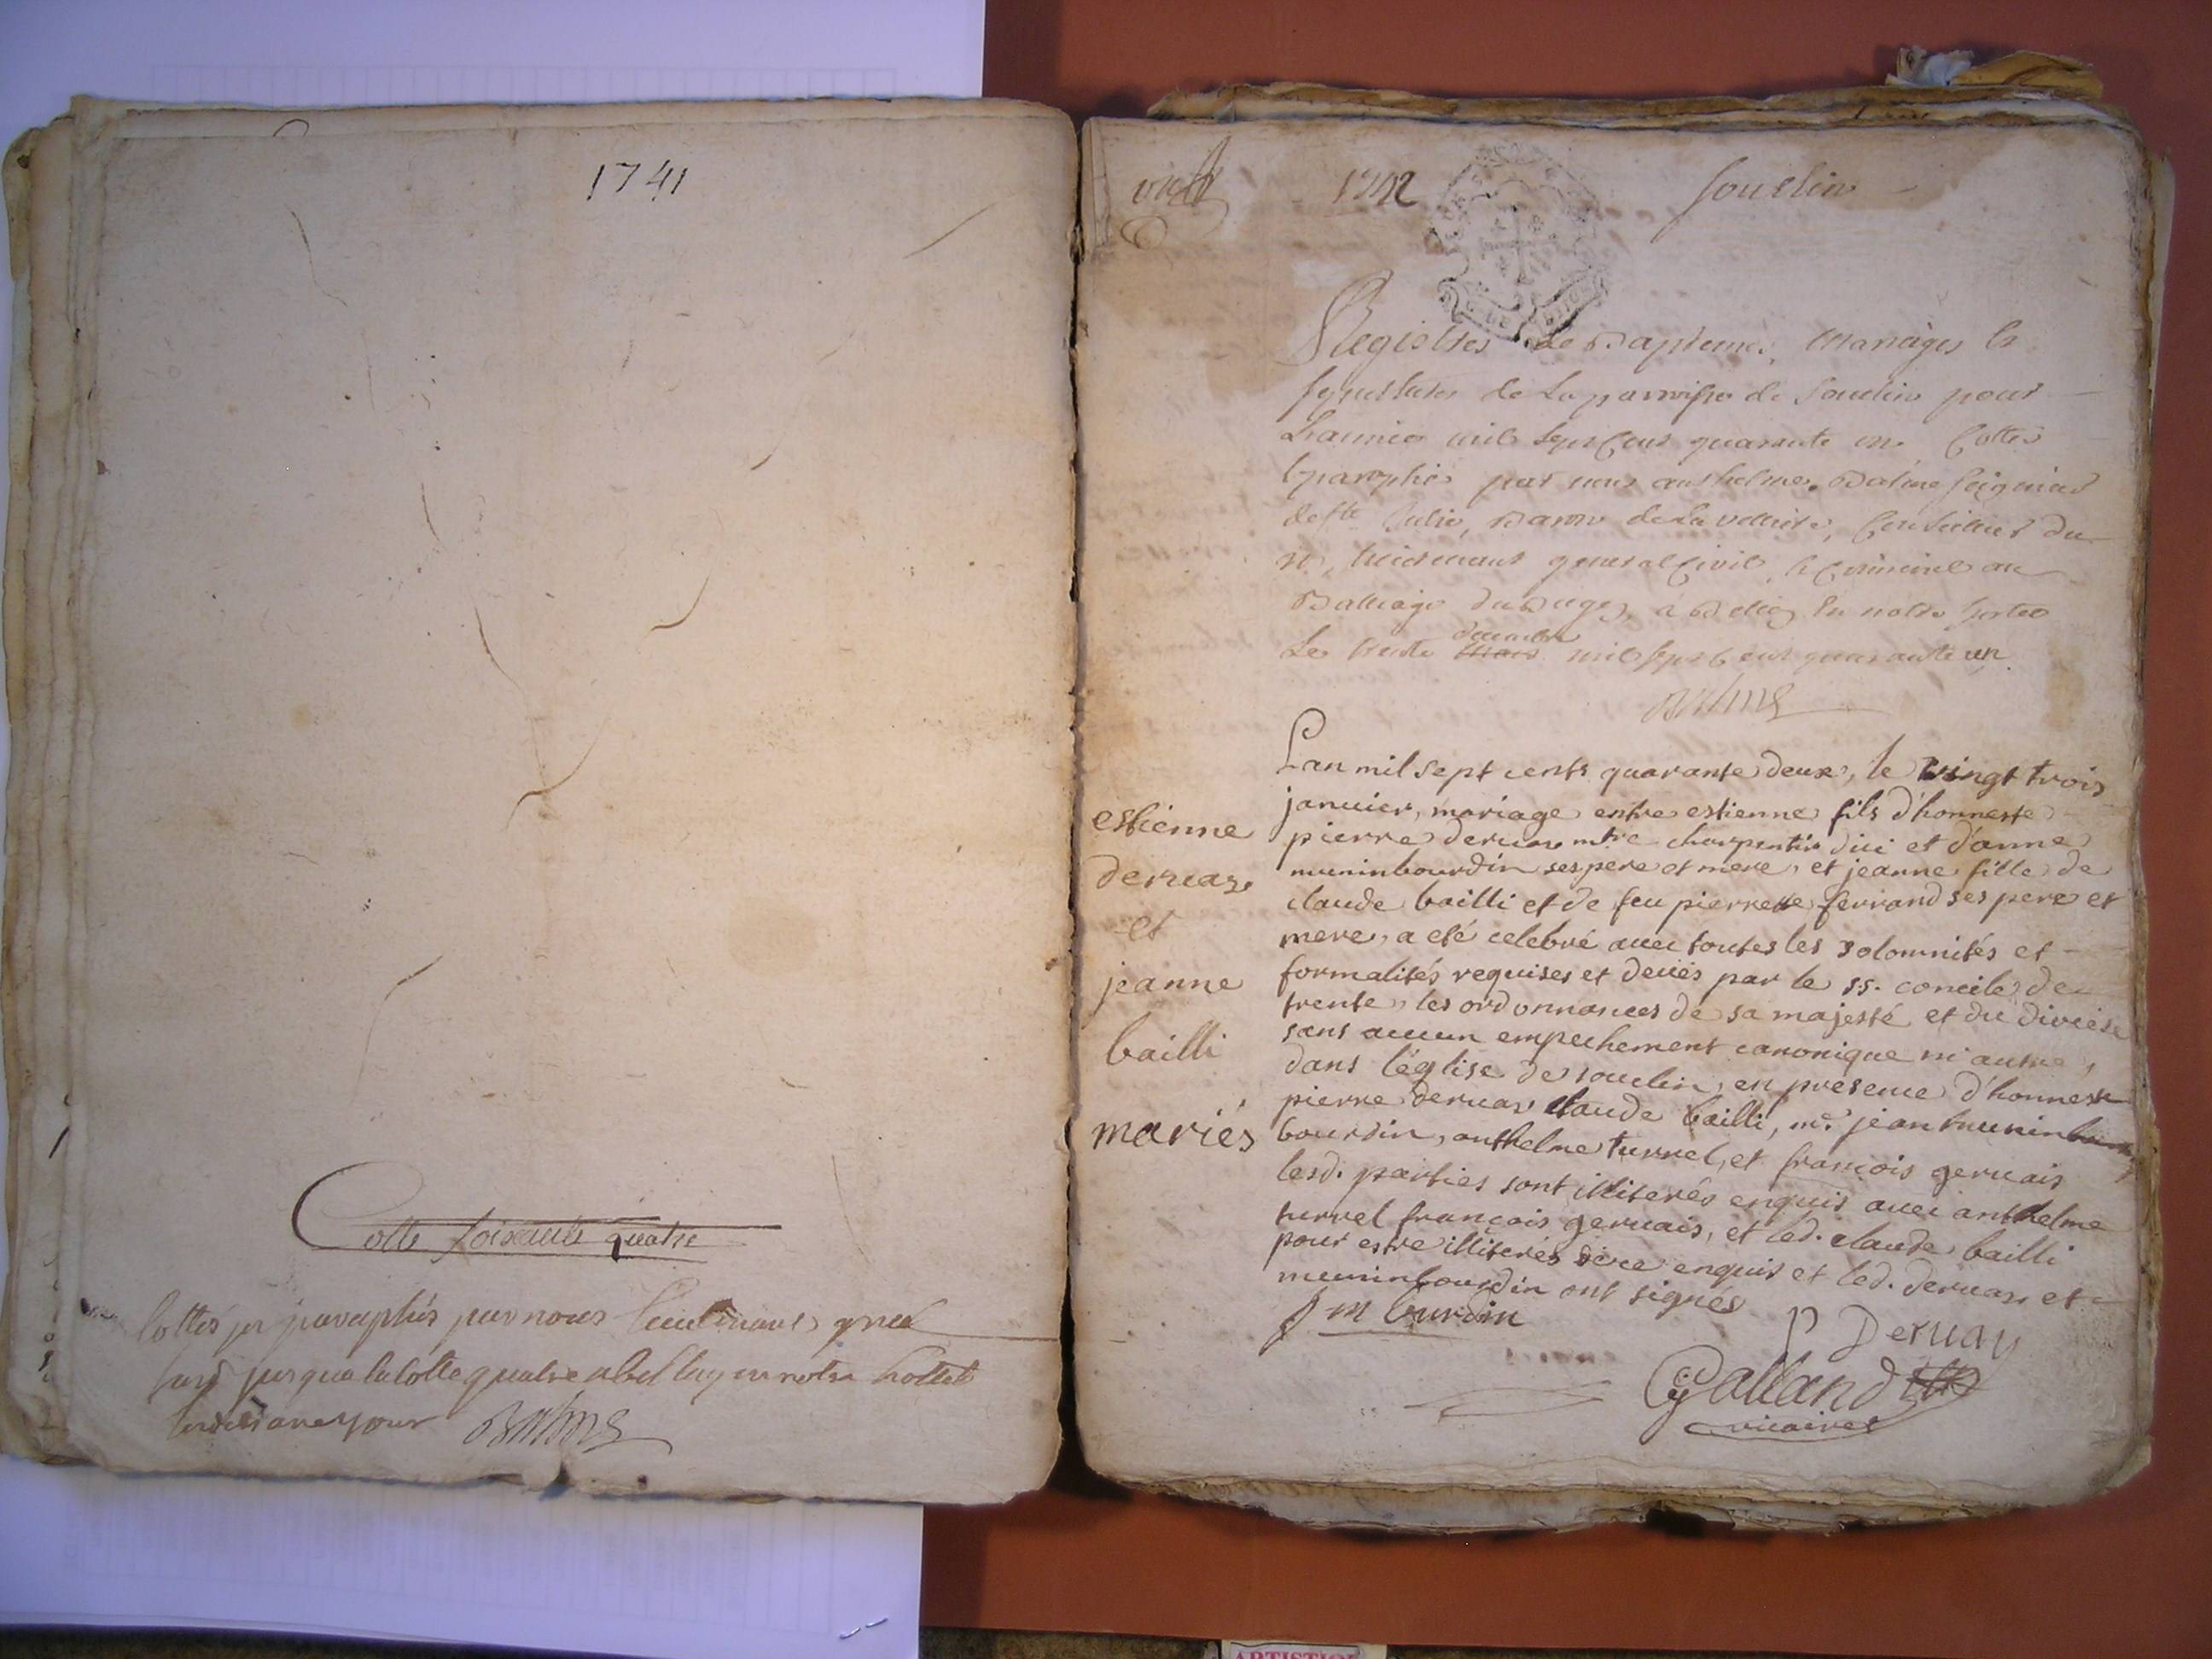 1741
Cotte soixante quatre
Cottés et paraphés par nous Lieutenant gnal
jusqua la cotte quatre a Belley en notre hottel
Balme
1742
Souclin
Registres de Baptemes, Mariages et
sepultures de la parroisse de Souclin pour
Lannée mil sept cens quarante un Cottés
et paraphés par nous anthelme Balme seigneur
de ste Julie, Baron de la velliere, Conseiller du
roy, Lieutenant general Civil, et Criminel au
Balliage du Bugey, a Belley en notre hostel
Le trente mars decembre mil sept cens quarante un
Balme
Lan mil sept cents quarante deux, le vingt trois
janvier, mariage entre estienne fils d'honneste
pierre deruas mtre charpentier d'ici et d'anne
muninbourdin ses pere et mere, et jeanne fille de
claude bailli et de feu pierrette ferrand ses pere et
mere, a eté celebré avec toutes les solomnités et
formalités requises et deues par le ss. concile de
trente, les ordonnances de sa majesté et du diocèse
sans aucun empechement canonique ni autre,
dans l'église de souclin, en presence d'honneste
pierre deruas claude bailli, mr. jean munin
bourdin, anthelme turrel, et françois geruais
lesd. parties sont illiterés enquis avec anthelme
turrel françois geruais, et led. claude bailli
pour estre illiterés de ce enquis et led. deruas et
muninbourdin ont signés
estienne
deruas
et
jeanne
bailli
mariés
J m burdin
P Deruas
Galland
vicaire